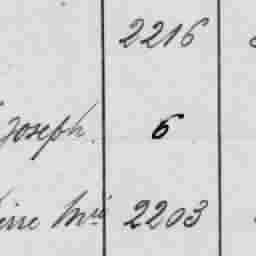 2216
Joseph. 6
erre Mie 2203